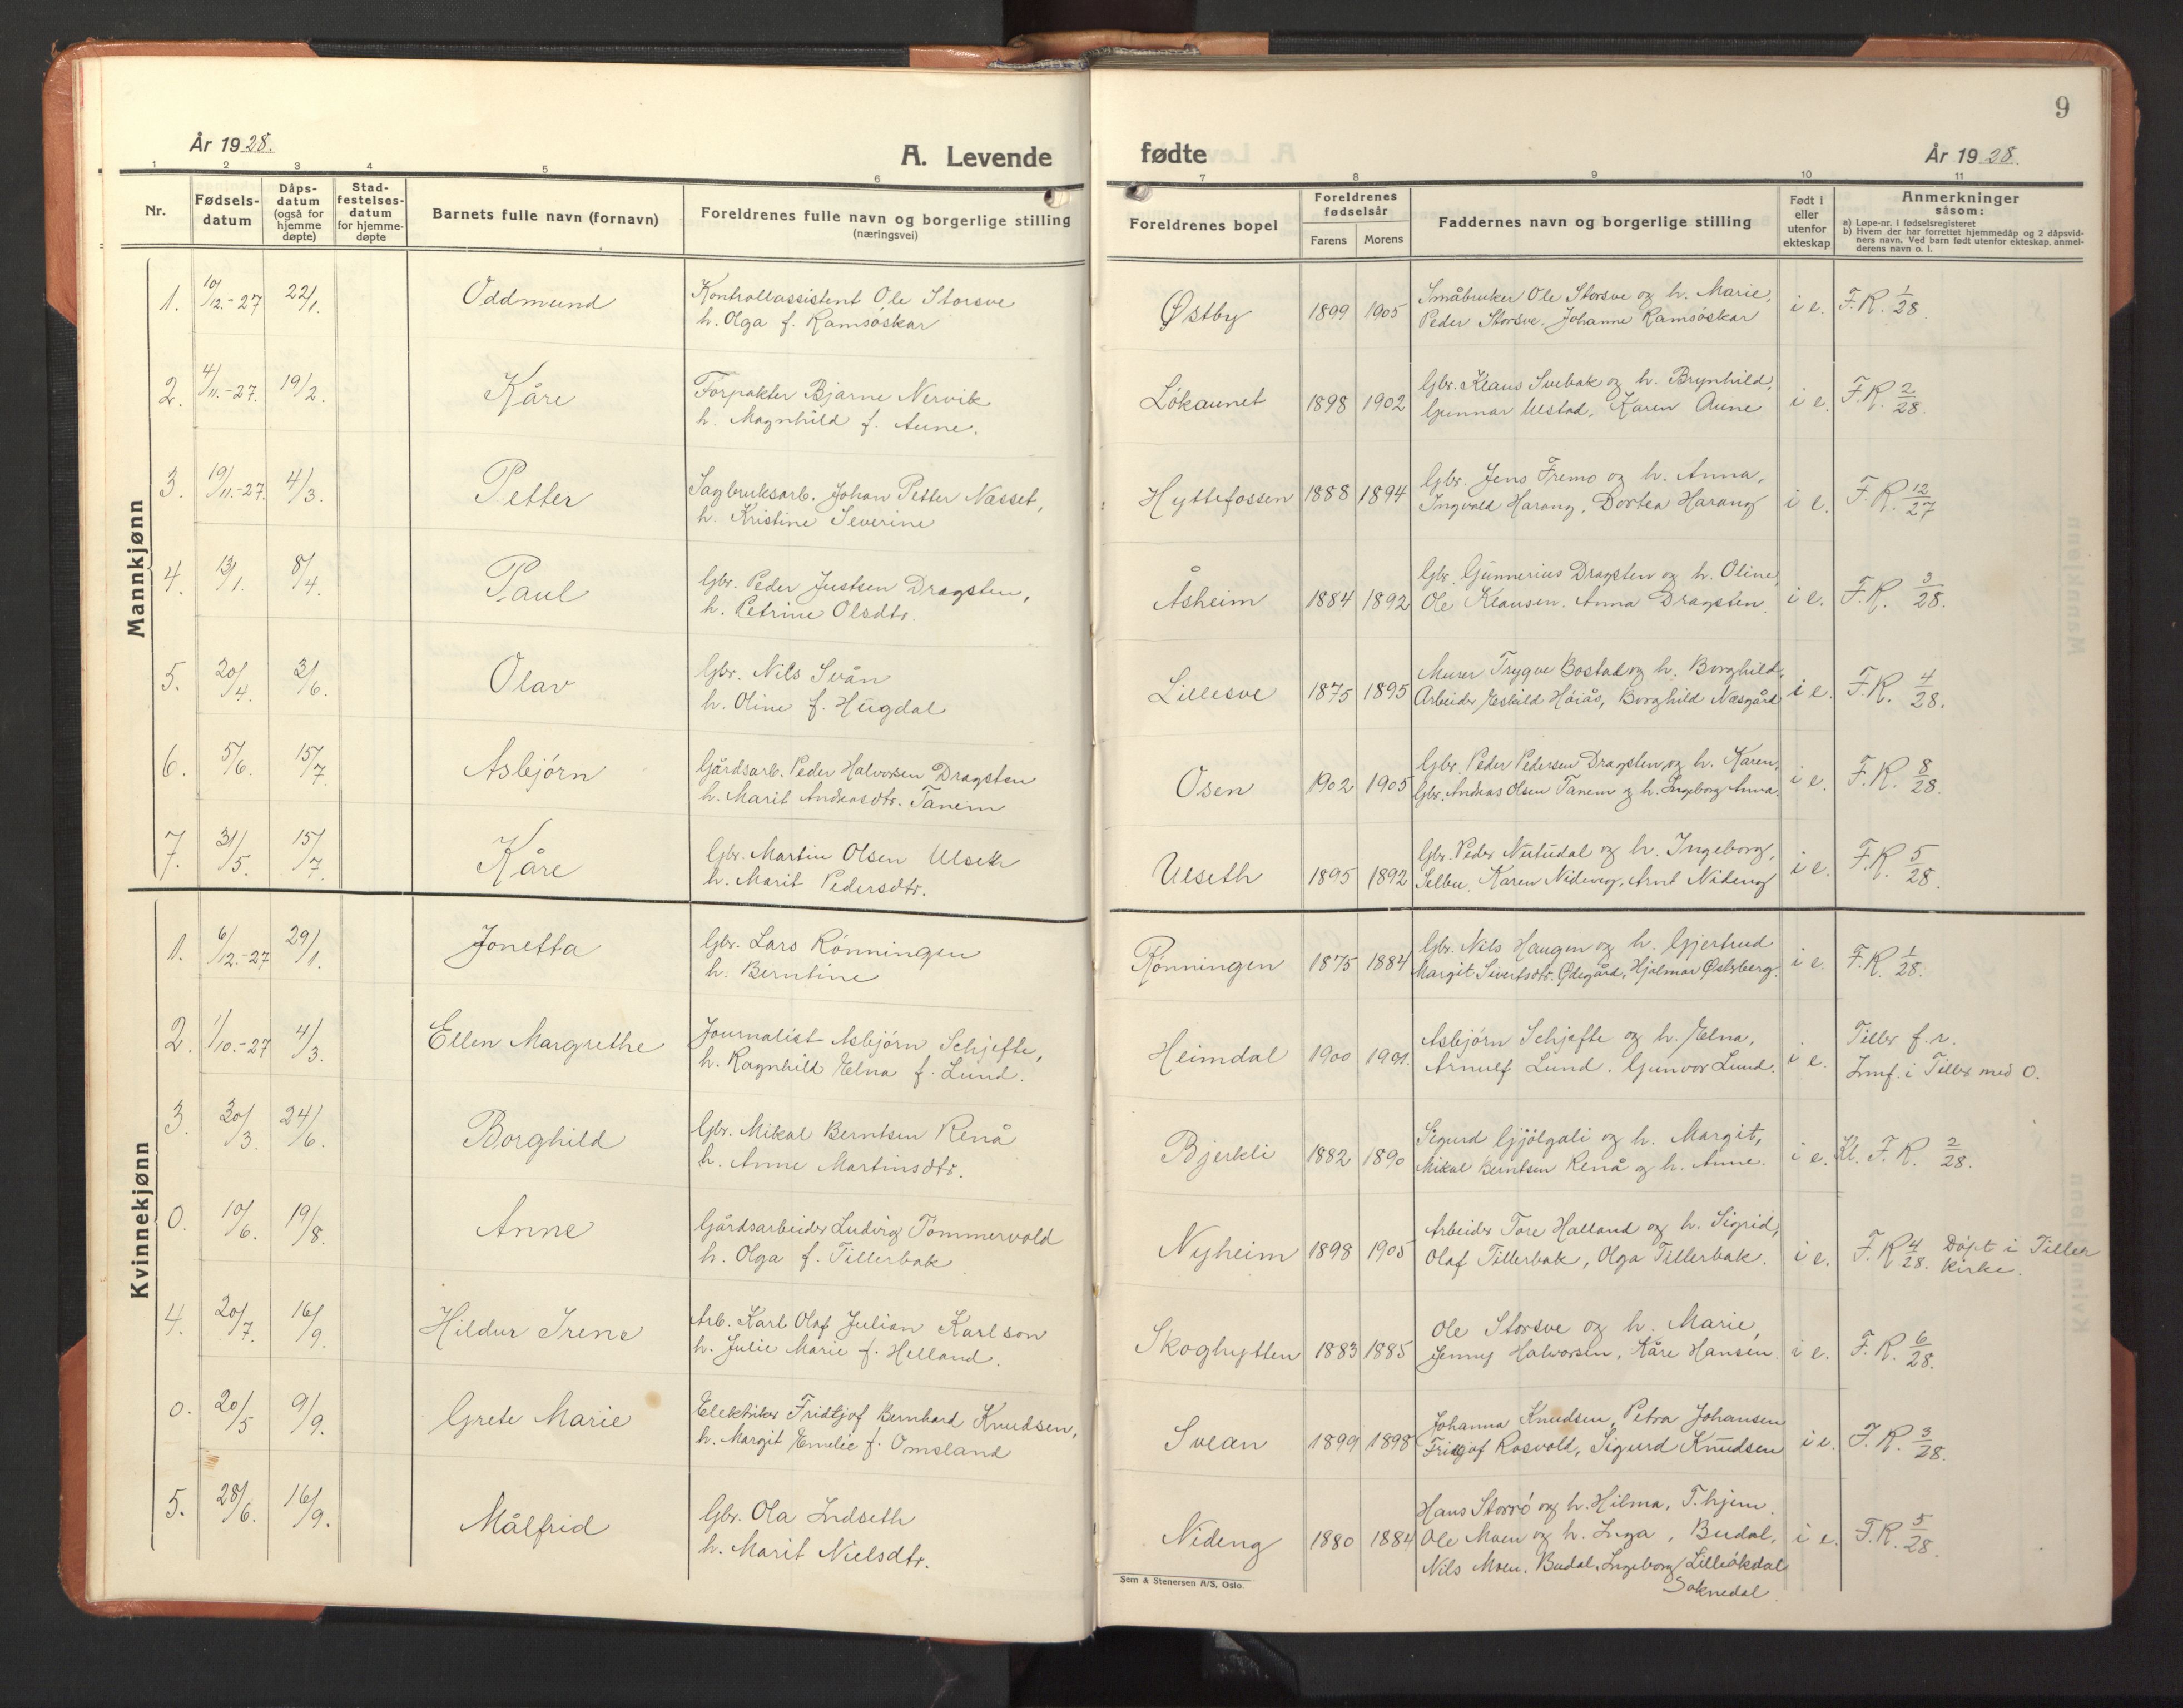 9
År 1928.
A. Levende
fødte
År 1928.
1 2 3 4 5 6 7 8 9 10 11
Nr.
Fødsels-
datum
Dåps-
datum
(også for
hjemme
døpte)
Stad-
festelses-
datum
for hjemme-
døpte
Barnets fulle navn (fornavn)
Foreldrenes fulle navn og borgerlige stilling
(næringsvei)
Foreldrenes bopel
Foreldrenes
fødselsår
Farens Morens
Faddernes navn og borgerlige stilling
Født i
eller
utenfor
ekteskap
Anmerkninger
såsom:
a) Løpe-nr. i fødselsregisteret
b) Hvem der har forrettet hjemmedåp og 2 dåpsvid-
ners navn. Ved barn født utenfor ekteskap, anmel-
derens navn o. l.
Mannkjønn
1. 10/12.-27 22/1. Oddmund
Kontrollassistent Ole Storsve
h. Olga f. Ramsöskar
Østby 1899 1905
Småbruker Ole Storsve og h. Marie,
Peder Storsve. Johanne Ramsöskar
i e. F.R. 1/28.
2. 4/11.-27. 19/2. Kåre
Forpakter Bjarne Nervik
h. Magnhild f. Aune.
Lökaunet 1898 1902
Gbr. Klaus Svebak og h. Brynhild,
Gunnar Ulstad, Karen Aune
i e. F.R. 2/28.
3. 19/11.-27. 4/3. Petter
Sagbruksarb. Johan Petter Næsset,
h. Kristine Severine
Hyttefossen 1888 1894
Gbr. Jens Fremo og h. Anna,
Ingvald Harang, Dortea Harang
i e. F.R. 12/27
4. 13/1. 8/4. Paul
Gbr. Peder Justsen Dragsten,
h. Petrine Olsdtr.
Åsheim 1884 1892
Gbr. Gunnerius Dragsten og h. Oline,
Ole Klausen. Anna Dragsten.
i e. F.R. 3/28.
5. 20/4. 3/6. Olav
Gbr. Nils Svån
h. Oline f. Hugdal
Lillesve 1875 1895
Murer Trygve Bostad og h. Borghild,
Arbeider Eskild Høiås, Borghild Næsgård
i e. F.R. 4/28.
6. 5/6. 15/7. Asbjörn
Gårdsarb. Peder Halvorsen Dragsten
h. Marit Andreasdtr. Tanem
Osen 1902 1905
Gbr. Peder Pedersen Dragsten og h. Karen,
Gbr. Andreas Olsen Tanem og h. Ingeborg Anna.
i e. F.R. 8/28.
7. 31/5. 15/7. Kåre
Gbr. Martin Olsen Ulseth
h. Marit Pedersdtr.
Ulseth 1895 1892
Gbr. Peder og h. Ingeborg,
Selbu. Karen Nideng, Arnt Nideng
i e. F.R. 5/28.
Kvinnekjønn
1. 6/12.-27 29/1. Jonetta
Gbr. Lars Rönningen
h. Berntine
Rönningen 1875 1884
Gbr. Nils Haugen og h. Gjertrud
Margit Sivertsdtr. Ødegård, Hjalmar Østerberg.
i e. F.R. 1/28.
2. 1/10.-27 4/3. Ellen Margrethe
Journalist Asbjörn Schjefte,
h. Ragnhild Elna f. Lund.
Heimdal 1900 1901.
Asbjörn Schjefte og h. Elna,
Arnulf Lund. Gunvor Lund.
i e. Tiller f.r.
Innf. i Tiller med 0.
3. 20/3. 24/6. Borghild
Gbr. Mikal Berntsen Renå
h. Anne Martinsdtr.
Bjerkli 1882 1890
Sigurd Gjölgali og h. Margit,
Mikal Berntsen Renå og h. Anne.
i e. Kl. F.R. 2/28.
0. 10/6. 19/8. Anne
Gårdsarbeider Ludvig Tömmervold
h. Olga f. Tillerbak
Nyheim 1898 1905
Arbeider Tore Halland og h. Sigrid,
Olaf Tillerbak, Olga Tillerbak.
i e. F.R. 4/28. Döpt i Tiller
kirke.
4. 20/7. 16/9. Hildur Irene
Arb. Karl Olaf Julian Karlson
h. Julie Marie f. Helland.
Skoghytten 1883 1885
Ole Storsve og h. Marie,
Jenny Halvorsen, Kåre Hansen.
i e. F.R. 6/28.
0. 20/5 9/9. Grete Marie
Elektriker Fridtjof Bernhard Knudsen,
h. Margit Emelie f. Omsland
Svean 1899 1898
Johanna Knudsen, Petra Johansen
Fridtjof Rosvold, Sigurd Knudsen
i e. F.R. 3/28.
5. 28/6. 16/9. Målfrid
Gbr. Ola Indseth
h. Marit Nielsdtr.
Nideng 1880 1884
Hans Storrö og h. Hilma, T.hjem.
Ole Moen og h. Inga, Budal,
Nils Moen, Budal. Ingeborg Lilleökdal
Soknedal.
i e. F.R. 5/28.
Sem & Stenersen A/S, Oslo.